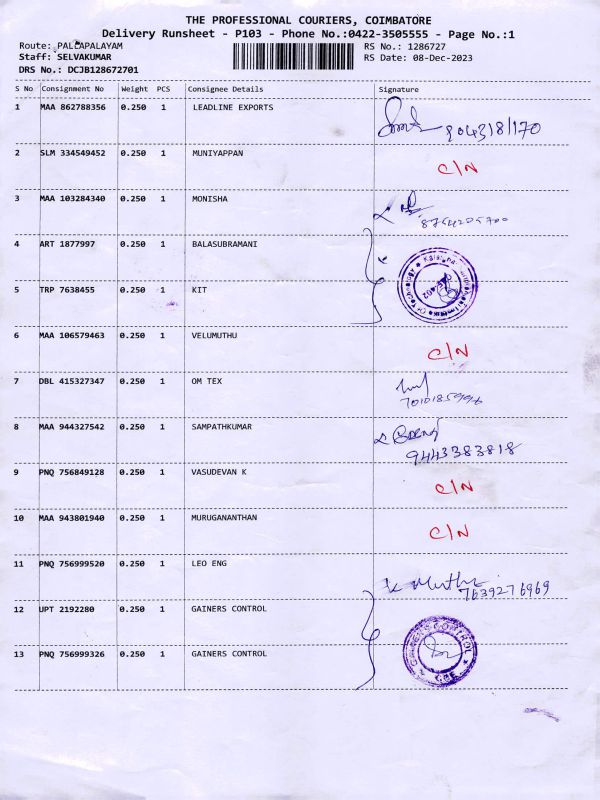 THE PROFESSIONAL COURIERS, COIMBATORE
Delivery Runsheet - P103 - Phone No.:0422-3505555 - Page No.:1
Route: PALLAPALAYAM RS No.: 1286727
Staff: SELVAKUMAR RS Date: 08-Dec-2023
DRS No.: DCJB128672701
S No Consignment No Weight PCS Consignee Details Signature
1 MAA 862788356 0.250 1 LEADLINE EXPORTS
2 SLM 334549452 0.250 1 MUNIYAPPAN C/N
3 MAA 103284340 0.250 1 MONISHA
4 ART 1877997 0.250 1 BALASUBRAMANI
5 TRP 7638455 0.250 1 KIT
6 MAA 106579463 0.250 1 VELUMUTHU C/N
7 DBL 415327347 0.250 1 OM TEX
8 MAA 944327542 0.250 1 SAMPATHKUMAR
9443383818
9 PNQ 756849128 0.250 1 VASUDEVAN K C/N
10 MAA 943801940 0.250 1 MURUGANANTHAN C/N
11 PNQ 756999520 0.250 1 LEO ENG
7639276969
12 UPT 2192280 0.250 1 GAINERS CONTROL
GAINERS CONTROL
13 PNQ 756999326 0.250 1 GAINERS CONTROL